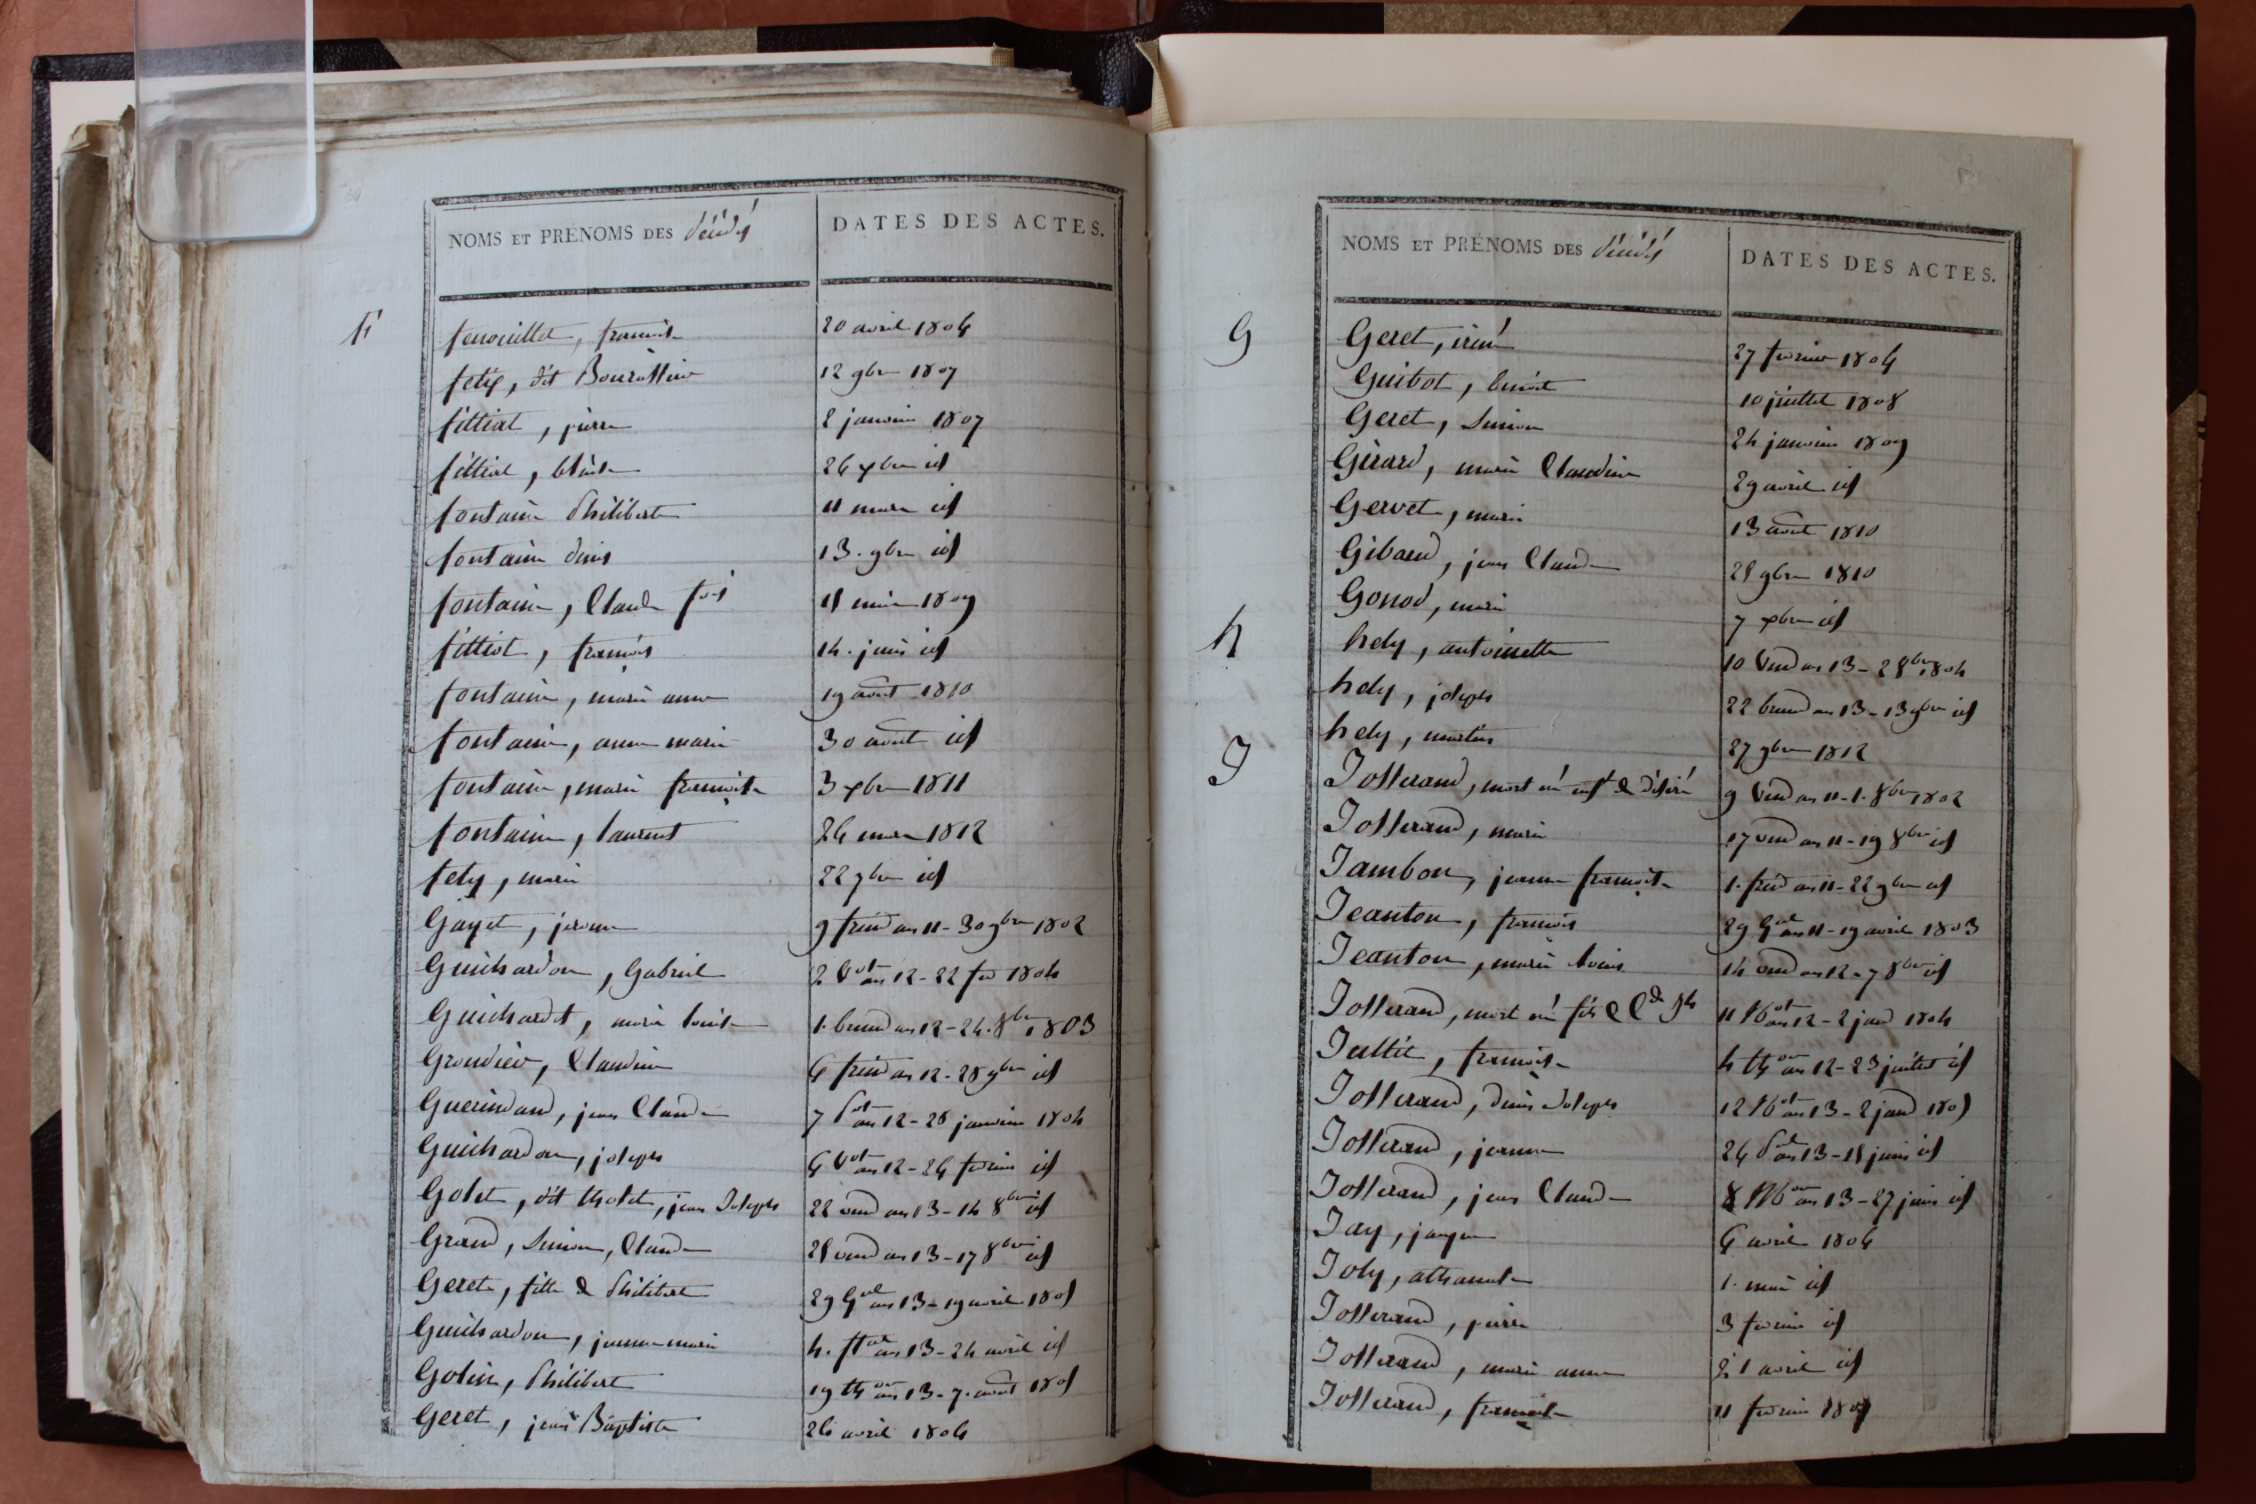 NOMS ET PRÉNOMS DES décédés
DATES DES ACTES.
F
fenouillet, francoise 20 avril 1806
felix, dit Bourassin 12 9bre 1807
filliat, pierre 2 janvier 1807
filliat, blaise 26 xbre id
fontaine Philiberte 11 mars id
fontaine denis 13. 9bre id
fontaine, Claude fois 1809
filliot, francois 14. juin id
fontaine, marie anne 19 aout 1810
fontaine, anne marie 30 aout id
fontaine, marie francoise 3 xbre 1811
fontaine, laurent 26 mars 1812
fely, marie 22 id
Gayet, jeanne 9 frim an 11 - 30 9bre 1802
Guichardon, Gabriel 2 Vot an 12 - 22 fer 1804
Guichardot, marie louise 1. brum an 12 - 24. 8bre 1803
Grandiev, Claudine 6 frim an 12 - 28 9bre id
Guerindand, jean Claude 7 Pot an 12 - 28 janvier 1804
Guichardon, joseph 6 Vot an 12 - 26 fevrier id
Golet, dit tholet, jean Joseph 22 vend an 13 - 14 8bre id
Grand, Simon, Claude 25 vend an 13 - 17 8bre id
Geret, fille de Philibert 29 Gal an 13 - 19 avril 1805
Guichardon, jeanne marie 4. flal an 13 - 24 avril id
Golin, Philibert 19 thor an 13 - 7. aout 1805
Geret, jean Baptiste 26 avril 1806
NOMS ET PRÉNOMS DES décédés
DATES DES ACTES.
G
Geret, iréné 27 fevrier 1806
Guibot, benoit 10 juillet 1808
Geret, Simon 24 janvier 1809
Girard, marie Claudine 29 avril id
Gervet, marie 13 aout 1810
Gibaud, jean Claude 25 9bre 1810
Gonod, marie 7 xbre id
h
hely, antoinette 10 Vend an 13 - 2 8bre 1804
hely, joseph 22 brum an 13 - 13 9bre id
hely, martin 27 9bre 1812
J
Josserand, mort né enft de désiré 9 Vend an 11 - 1. 8bre 1802
Josserand, marie 17 vend an 11 - 19 8bre id
Jambon, jeanne francoise 1. frim an 11 - 22 9bre id
Jeanton, francois 29 Gal an 11 - 19 avril 1803
Jeanton, marie louise 14 vend an 12 - 7 8bre id
Josserand, mort né fils de Cde Jh 11 Not an 12 - 2 janv 1804
Jullit, francoise 4 thor an 12 - 23 juillet id
Josserand, denis Joseph 12 Not an 13 - 2 janv 1805
Josserand, jeanne 26 Pal an 13 - 15 juin id
Josserand, jean Claude 8 Mor an 13 - 27 juin id
Jay, jacques 6 avril 1806
Joly, athanase 1. mai id
Josserand, pierre 3 fevrier id
Josserand, marie anne 21 avril id
Josserand, francoise 11 fevrier 1807